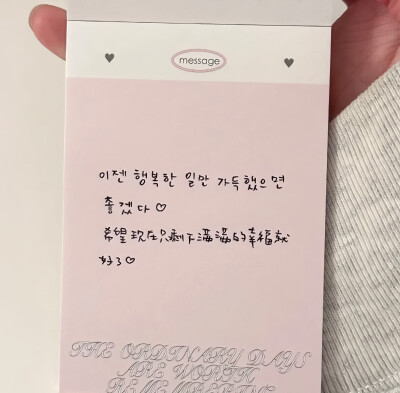 message
이젠 행복한 일만 가득했으면
좋겠다♡
希望现在只剩下满满的幸福就
好了♡
THE ORDINARY DAYS
ARE WORTH
REMEMBERING